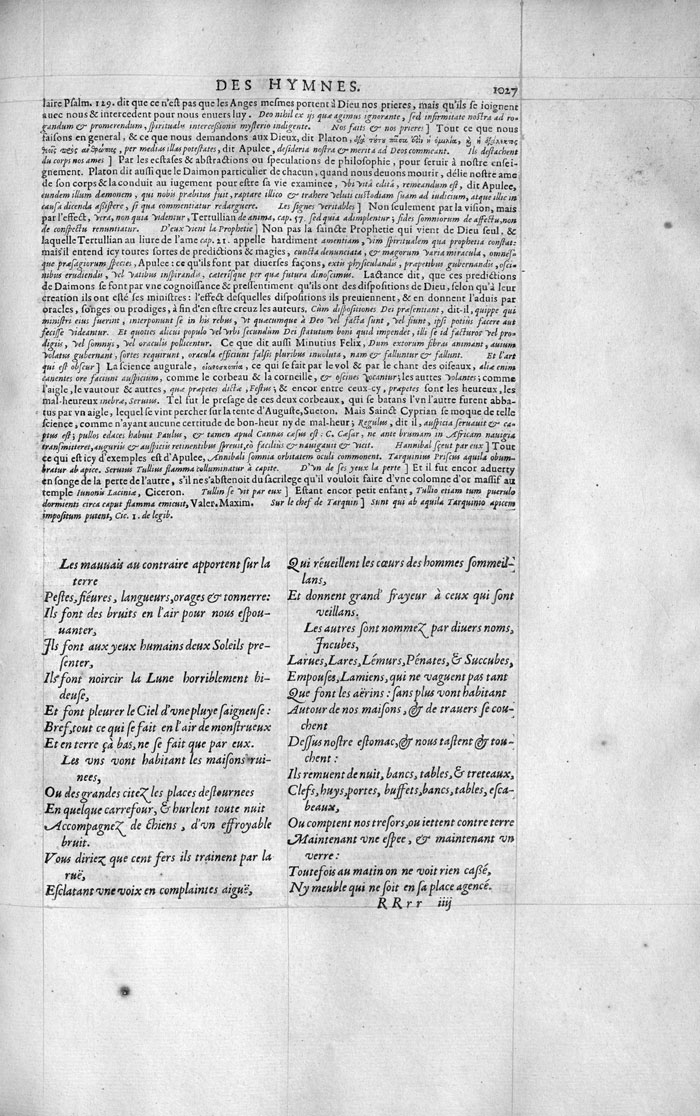 DES HYMNES. 1027
laire Psalm. 129. dit que ce n'est pas que les Anges mesmes portent à Dieu nos prieres, mais qu'ils se ioignent
auec nous & intercedent pour nous enuers luy. Deo nihil ex ijs quæ agimus ignorante, sed infirmitate nostra ad ro-
gandum & promerendum, spirituale intercessionis mysterio indigente. Nos faits & nos prieres] Tout ce que nous
faisons en general, & ce que nous demandons aux Dieux, dit Platon,
per medias illas potestates, dit Apulee, desideria nostra & merita ad Deos commeant. Ils destachent
du corps nos ames] Par les ecstases & abstractions ou speculations de philosophie, pour seruir à nostre ensei-
gnement. Platon dit aussi que le Daimon particulier de chacun, quand nous deuons mourir, deslie nostre ame
de son corps & la conduit au iugement pour estre sa vie examinee, vbi vitâ editâ, remeandum est, dit Apulee,
eundem illum dæmonem, qui nobis præbitus fuit, raptare illico & trahere veluti custodiam suam ad iudicium, atque illic in
causa dicenda assistere, si qua commentiatur redarguere. Les signes veritables] Non seulement par la vision, mais
par l'effect, vera, non quia videntur, Tertullian de anima, cap. 57. sed quia adimplentur; fides somniorum de affectu, non
de conspectu renuntiatur. D'eux vient la Prophetie] Non pas la saincte Prophetie qui vient de Dieu seul, &
laquelle Tertullian au liure de l'ame cap. 21. appelle hardiment amentiam, vim spiritualem qua prophetia constat:
mais il entend icy toutes sortes de predictions & magies, cuncta denunciata, & magorum varia miracula, omnes-
que præsagiorum species, Apulee: ce qu'ils font par diuerses façons, extis physiculandis, præpetibus gubernandis, osci-
nibus erudiendis, vel vatibus inspirandis, cæterisque per quæ futura dinoscimus. Lactance dit, que ces predictions
de Daimons se font par vne cognoissance & presentiment qu'ils ont des dispositions de Dieu, selon qu'à leur
creation ils ont esté ses ministres: l'effect desquelles dispositions ils preuiennent, & en donnent l'aduis par
oracles, songes ou prodiges, à fin d'en estre creuz les auteurs. Cùm dispositiones Dei præsentiant, dit-il, quippe qui
ministri eius fuerint, interponunt se in his rebus, vt quæcumque à Deo vel facta sunt, vel fiunt, ipsi potius facere aut
fecisse videantur. Et quoties alicui populo vel vrbi secundum Dei statutum boni quid impendet, illi se id facturos vel pro-
digiis, vel somniis, vel oraculis pollicentur. Ce que dit aussi Minutius Felix, Dum extorum fibras animant, auium
volatus gubernant, sortes requirunt, oracula efficiunt falsis pluribus inuoluta, nam & falluntur & fallunt. Et l'art
qui est obscur] La science augurale, ce qui se fait par le vol & par le chant des oiseaux, aliæ enim
canentes ore faciunt auspicium, comme le corbeau & la corneille, & oscines vocantur; les autres volantes; comme
l'aigle, le vautour & autres, quæ præpetes dictæ, Festus; & encor entre ceux-cy, præpetes sont les heureux, les
mal-heureux inebræ, Seruius. Tel fut le presage de ces deux corbeaux, qui se batans l'vn l'autre furent abba-
tus par vn aigle, lequel se vint percher sur la tente d'Auguste, Sueton. Mais Sainct Cyprian se moque de telle
science, comme n'ayant aucune certitude de bon-heur ny de mal-heur; Regulus, dit il, auspicia seruauit & ca-
ptus est; pullos edaces habuit Paulus, & tamen apud Cannas cæsus est: C. Cæsar, ne ante brumam in Africam nauigia
transmitteret, auguriis & auspiciis retinentibus spreuit, eò facilius & nauigauit & vicit. Hannibal sçeut par eux] Tout
ce qui est icy d'exemples est d'Apulee, Annibali somnia orbitatem oculi comminent. Tarquinius Priscus aquila obum-
bratur ab apice. Seruius Tullius flamma colluminatur à capite. D'vn de ses yeux la perte] Et il fut encor aduerty
en songe de la perte de l'autre, s'il ne s'abstenoit du sacrilege qu'il vouloit faire d'vne colomne d'or massif au
temple Iunonis Laciniæ, Ciceron. Tullin se vit par eux] Estant encor petit enfant, Tullio etiam tum puerulo
dormienti circa caput flamma emicuit, Valer. Maxim. Sur le chef de Tarquin] Sunt qui ab aquila Tarquinio apicem
impositum putent, Cic. 1. de legib.
Les mauuais au contraire apportent sur la
terre
Pestes, fiéures, langueurs, orages & tonnerre:
Ils font des bruits en l'air pour nous espou-
uanter,
Ils font aux yeux humains deux Soleils pre-
senter,
Ils font noircir la Lune horriblement hi-
deuse,
Et font pleurer le Ciel d'vne pluye saigneuse:
Bref, tout ce qui se fait en l'air de monstrueux
Et en terre çà bas, ne se fait que par eux.
Les vns vont habitant les maisons rui-
nees,
Ou des grandes citez les places destournees
En quelque carrefour, & hurlent toute nuit
Accompagnez de chiens, d'vn effroyable
bruit.
Vous diriez que cent fers ils trainent par la
ruë,
Esclatant vne voix en complaintes aiguë,
Qui réueillent les cœurs des hommes sommeil-
lans,
Et donnent grand' frayeur à ceux qui sont
veillans.
Les autres sont nommez par diuers noms,
Incubes,
Larues, Lares, Lémurs, Pénates, & Succubes,
Empouses, Lamiens, qui ne vaguent pas tant
Que font les aërins: sans plus vont habitant
Autour de nos maisons, & de trauers se cou-
chent
Dessus nostre estomac, & nous tastent & tou-
chent:
Ils remuent de nuit, bancs, tables, & treteaux,
Clefs, huys, portes, buffets, bancs, tables, esca-
beaux,
Ou comptent nos tresors, ou iettent contre terre
Maintenant vne espee, & maintenant vn
verre:
Toutefois au matin on ne voit rien cassé,
Ny meuble qui ne soit en sa place agencé.
RRrr iiij